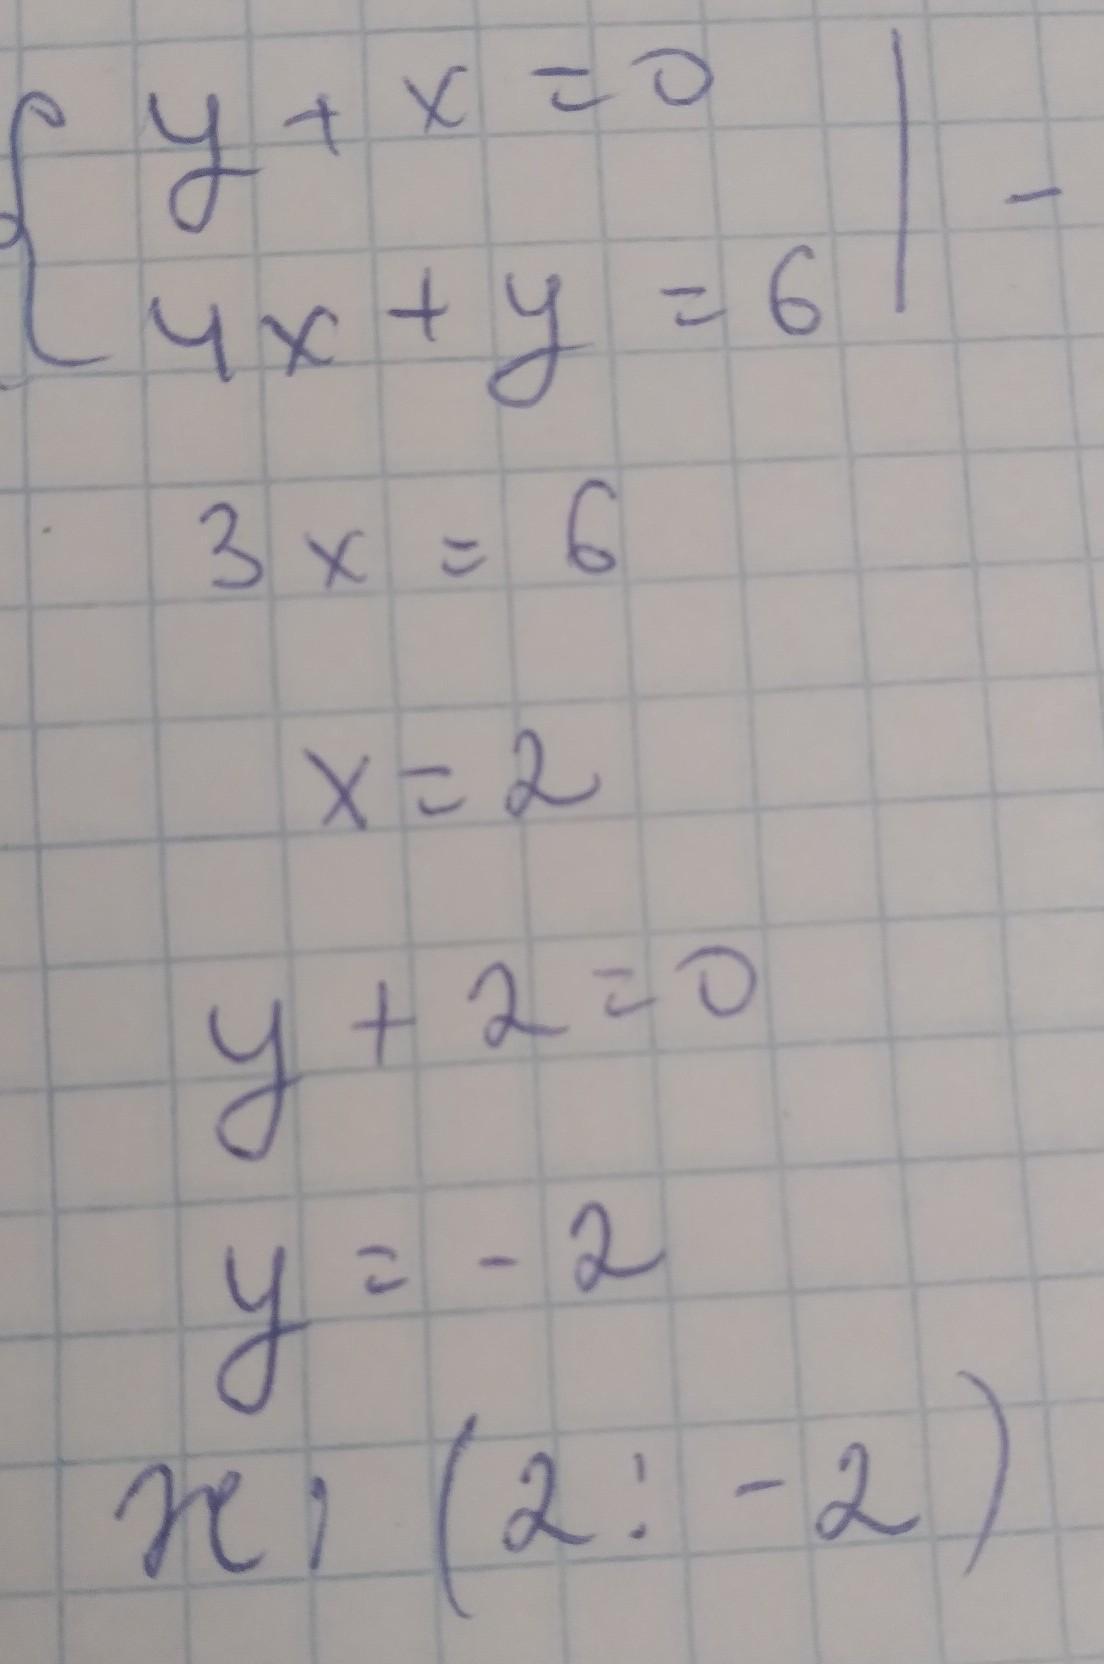 y + x = 0 | -
4x + y = 6
3x = 6
x = 2
y + 2 = 0
y = - 2
(2 ; - 2)